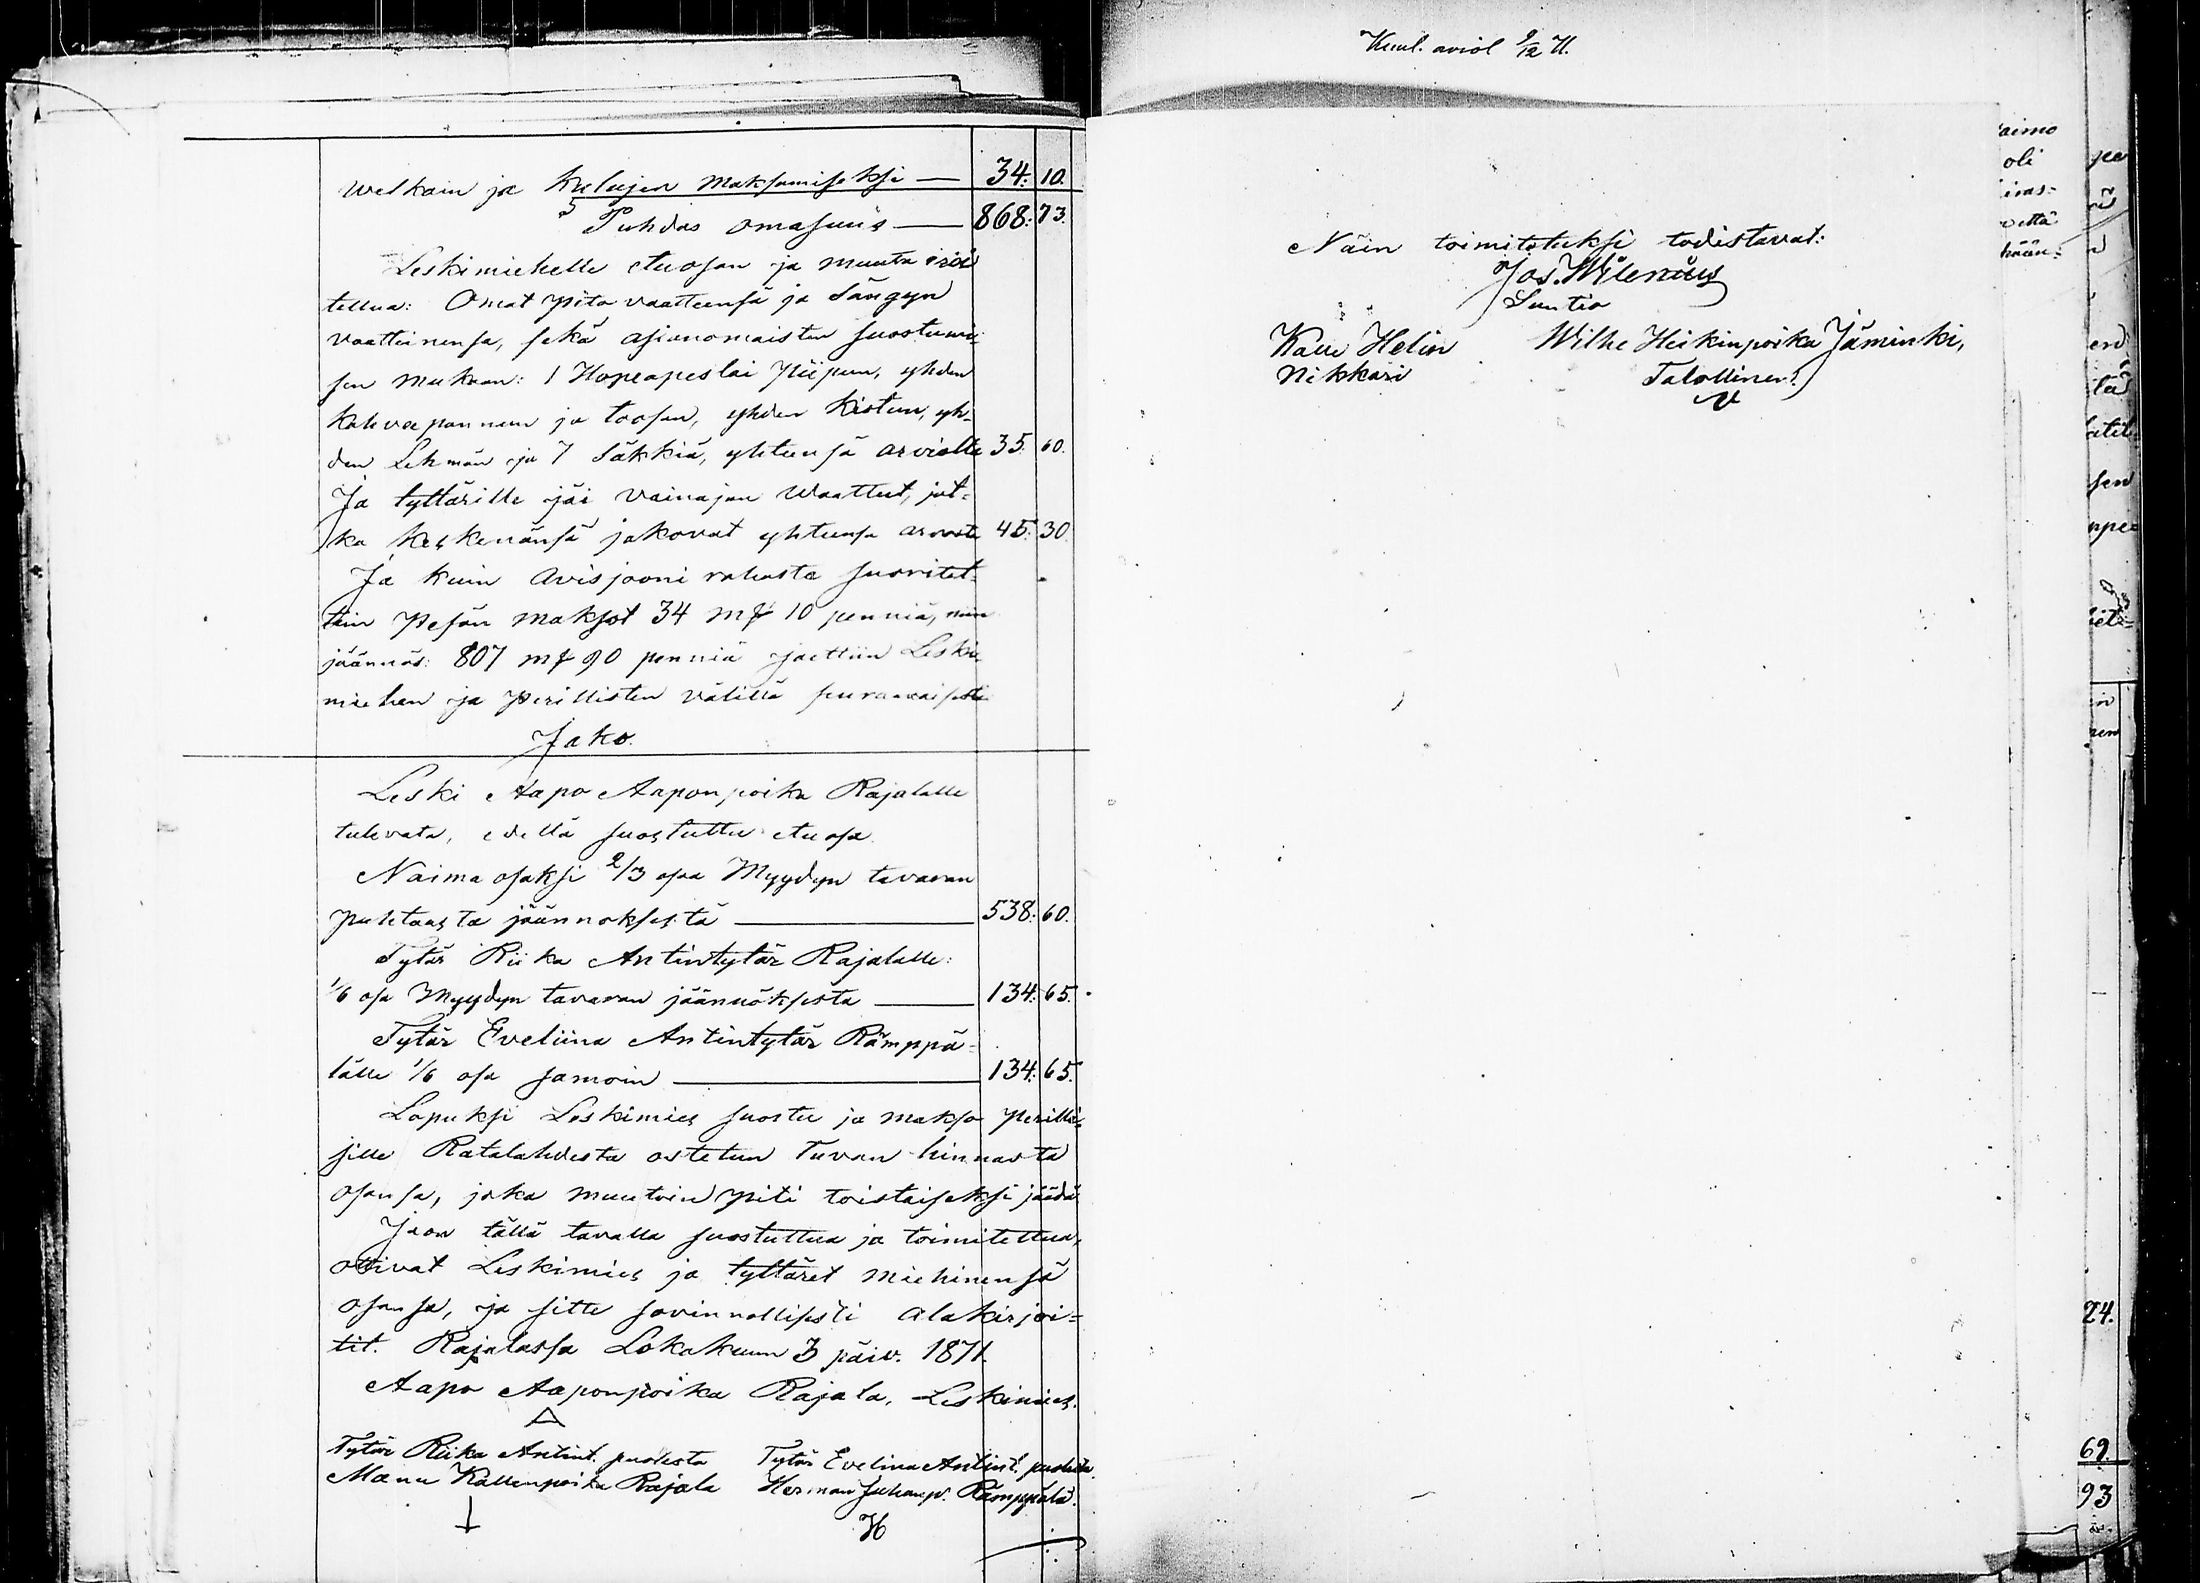 Welkain ja Kulujen Maksamiseksi — 34: 10.
Puhdas omasuus — 868: 73.
Leskimiehelle etuosan ja muuta eroi
tellua: Omat pito vaatteensa ja Sängyn
vaatteinensa, sekä asianomaisten suostumi-
sen mukaan: 1 Hopeapeslai Piipun, yhden
kahveepannun ja toosan, yhden kistun, yh-
den Lehmän ja 7 säkkiä, yhteensä arviolta 35. 60.
Ja tyttärille jäi Vainajan Waatteet, jot-
ka keskenänsä jakovat yhteensä arvosta 45. 30.
Ja kuin Avisjooni rahasta suoritet-
tiin Pesän maksot 34 mk 10 penniä, niin
jäännös: 807 mk 90 penniä jaettiin Leski
miehen ja Perillisten välillä seuraavaisesti
Jako.
Leski Aapo Aaponpoika Rajalalle
tulevata, edellä suostuttu etuosa.
Naima osaksi 2/3 osaa Myydyn tavaran
puhtaasta jäännöksestä — 538: 60.
Tytär Riika Antintytär Rajalalle:
1/6 osa Myydyn tavaran jäännöksestä — 134: 65.
Tytär Eveliina Antintytär Rämppä-
lälle 1/6 osa samoin — 134: 65.
Lopuksi Leskimies suostu ja maksa Perilli-
sille Ratalahdesta ostetun Tuvan hinnasta
osansa, joka muutoin piti toistaiseksi jäädä
tällä tavalla suostuttua ja toimitettua,
ottivat Leskimies ja tyttäret miehinensä
osansa, ja sitte sovinnollisesti alakirjoi-
tit. Rajalassa Lokakuun 3 päiv. 1871.
Aapo Aaponpoika Rajala, Leskimies.
Tytär Riika Antint. puolesta Tytär Evelina Antint. puolesta
Manu Kallenpoika Rajala Herman Juhanp. Rämppälä.
Kuul. aviol 9/12 71.
Näin toimitetuksi todistavat:
Jos. Wilenius
Suntio
Kalle Helin Wilhe Heikinpoika Jäminki,
Nikkari Talollinen.
aimo
oli
että
hään-
24.
69.
93